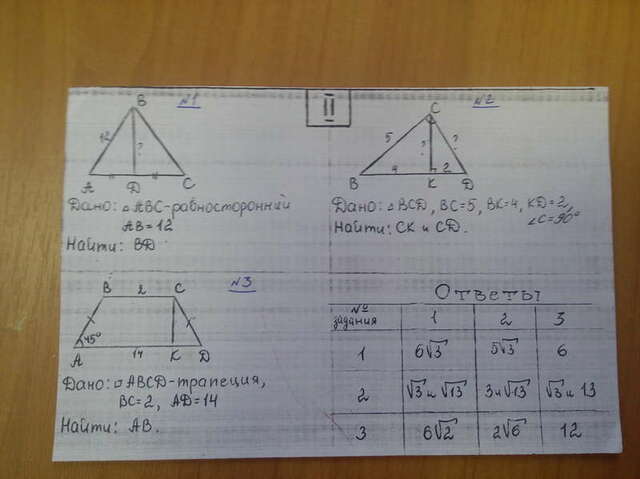 №1
II
№2
B
12
?
A
D
C
Дано: △ABC-равносторонний
AB=12
Найти: BD
C
5
?
?
4
2
B
K
D
Дано: △BCD, BC=5, BK=4, KD=2,
∠C=90°
Найти: CK и CD.
№3
B
2
C
45°
A
14
K
D
Дано: ▱ABCD-трапеция,
BC=2, AD=14
Найти: AB.
Ответы
№ задания 1 2 3
1 6√3 5√3 6
2 √3 и √13 3 и √13 √3 и 13
3 6√2 2√6 12